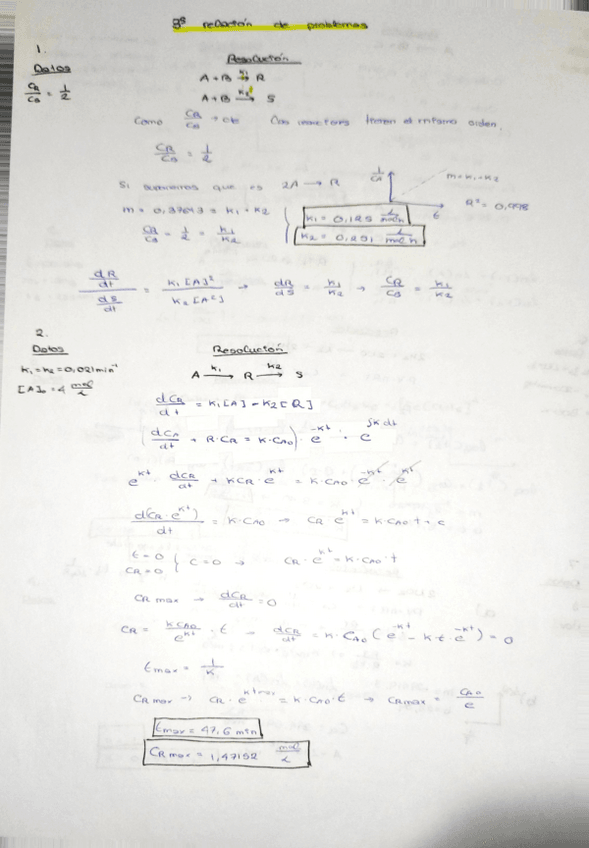 3ª relación de problemas
1.
Datos
CR/CS = 1/2
Resolución
A + B →(k1) R
A + B →(k2) S
Como CR/CS → cte Las reacciones tienen el mismo orden.
CR/CS = 1/2
Si suponemos que es 2A → R
1/CA
m = k1 + k2
t
R² = 0,998
m = 0,37643 = k1 + k2
CR/CS = 1/2 = k1/k2
k1 = 0,125 L/mol h
k2 = 0,251 L/mol h
(dR/dt)/(dS/dt) = k1 [A]²/k2 [A²] → dR/dS = k1/k2 → CR/CS = k1/k2
2.
Datos
k1 = k2 = 0,021 min⁻¹
[A]0 = 4 mol/L
Resolución
A →(k1) R →(k2) S
dCR/dt = k1 [A] - k2 [R]
(dCA/dt + R·CR = k·CA0) · e^-kt · e^∫k dt
e^kt · dCR/dt + kCR · e^kt = k·CA0 · e^-kt · e^kt
d(CR·e^kt)/dt = k·CA0 → CR e^kt = k·CA0 t + c
t = 0
CR = 0 } C = 0 → CR · e^kt = k·CA0·t
CR max → dCR/dt = 0
CR = k CA0/e^kt · t → dCR/dt = k·CA0 (e^-kt - k·t·e^-kt) = 0
tmax = 1/k
CR max → CR · e^kt max = k·CA0·t → CRmax = CA0/e
tmax = 47,6 min
CR max = 1,47152 mol/L